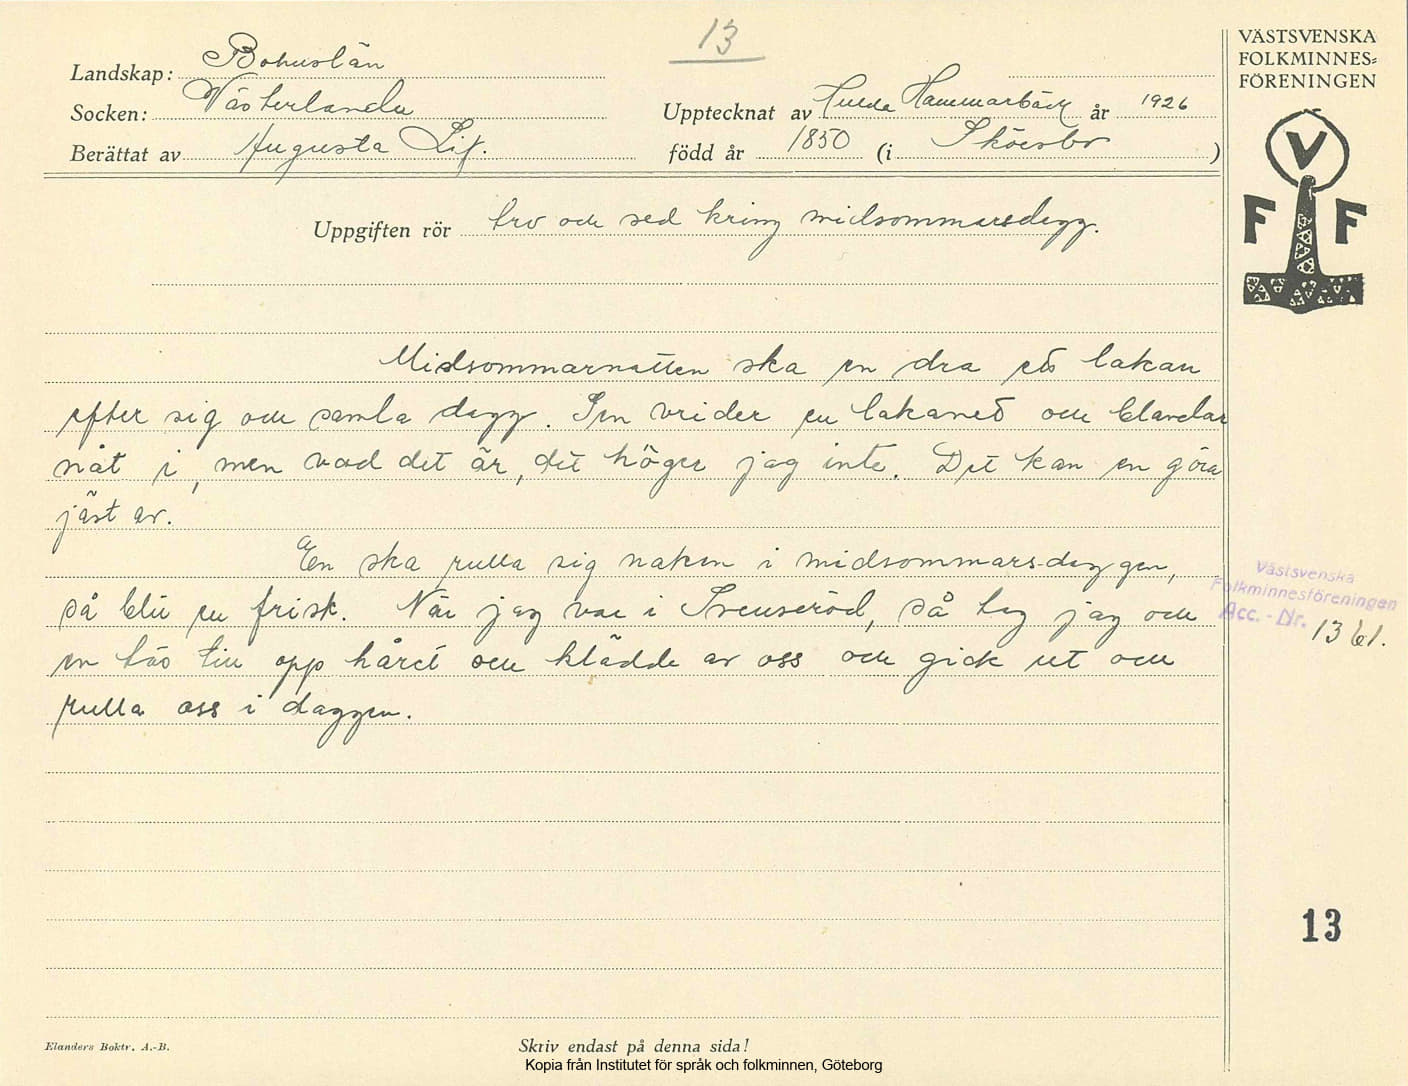 13
VÄSTSVENSKA
FOLKMINNES=
FÖRENINGEN
Landskap: Bohuslän
Socken: Västerlanda
Upptecknat av Hulda Hammarbäck år 1926
Berättat av Augusta Lif.
född år 1850 (i Skörsbo )
V
F F
Uppgiften rör tro och sed kring midsommarsdagg.
Midsommarnatten ska en dra ett lakan
efter sig och samla dagg. Sen vrider en lakanet och blandar
nåt i, men vad det är, det höger jag inte. Det kan en göra
jäst av.
En ska rulla sig naken i midsommars-daggen,
så blir en frisk. När jag var i Svenseröd, så tog jag och
en tös till opp håret och klädde av oss och gick ut och
rulla oss i daggen.
Västsvenska
Folkminnesföreningen
Acc. - Nr. 1361.
13
Elanders Boktr. A.-B.
Skriv endast på denna sida!
Kopia från Institutet för språk och folkminnen, Göteborg